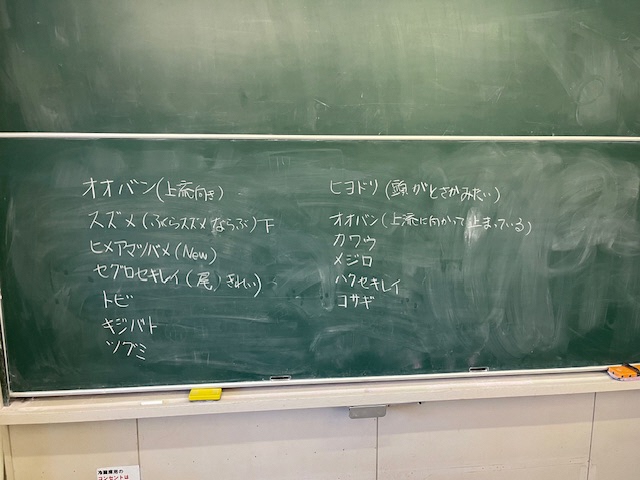 オオバン(上流向き)
スズメ(ふくらスズメならぶ)下
ヒメアマツバメ(New)
セグロセキレイ(尾)きれい)
トビ
キジバト
ツグミ
ヒヨドリ(頭がとさかみたい)
オオバン(上流に向かって止まっている)
カワウ
メジロ
ハクセキレイ
コサギ
冷蔵庫用の
コンセントは